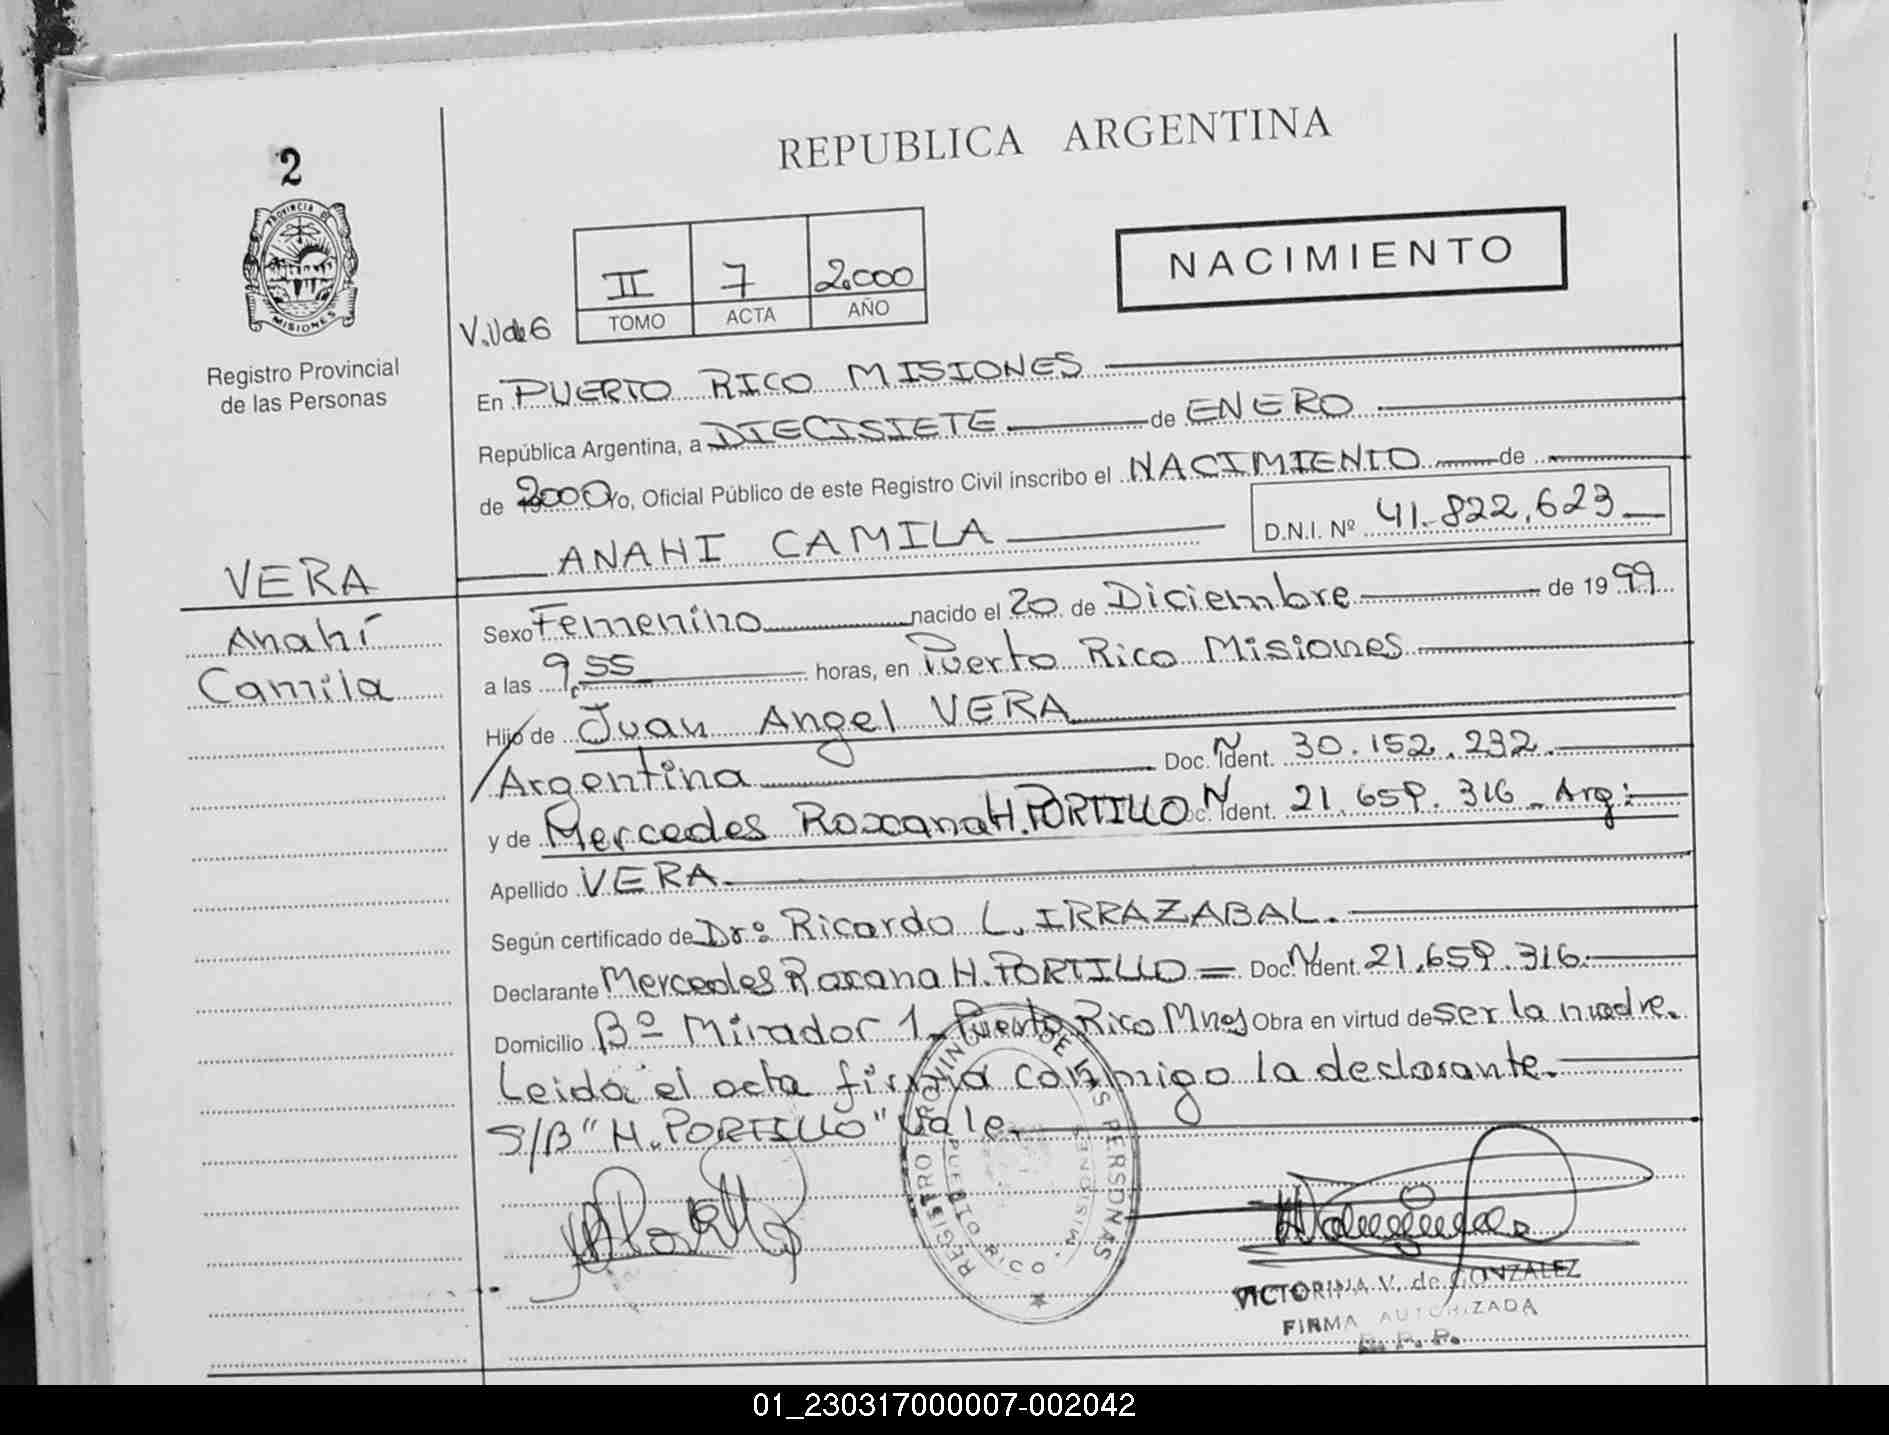 2
PROVINCIA DE
MISIONES
Registro Provincial
de las Personas
VERA
Anahí
Camila
REPUBLICA ARGENTINA
II 7 2.000
TOMO ACTA AÑO
NACIMIENTO
En PUERTO RICO MISIONES
República Argentina, a DIECISIETE de ENERO
de 2000%, Oficial Público de este Registro Civil inscribo el NACIMIENTO de
ANAHI CAMILA D.N.I. Nº 41.822.623
Sexo Femenino nacido el 20 de Diciembre de 1999
a las 9,55 horas, en Puerto Rico Misiones
Hijo de Juan Angel VERA
Argentina Doc. Ident. N 30.152.232.
y de Mercedes Roxana H. PORTILLO Ident. N 21.659.316 - Arg:
Apellido VERA
Según certificado de Dr: Ricardo L. IRRAZABAL.
Declarante Mercedes Roxana H. PORTILLO = Doc. N Ident. 21.659.316.
Domicilio Bº Mirador 1, Puerto Rico Mnes Obra en virtud de ser la madre.
Leida el acta firma conmigo la declarante.
S/B "H. PORTILLO" Vale.
REGISTRO PROVINCIAL DE LAS PERSONAS
PUERTO RICO - MISIONES
VICTORINA V. de GONZALEZ
FIRMA AUTORIZADA
R. P. P.
01_230317000007-002042